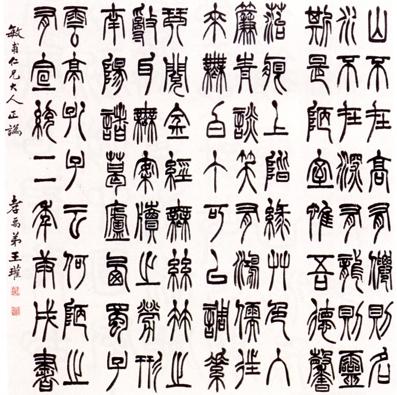 山不在高有僊則名
水不在深有龍則靈
斯是陋室惟吾德馨
苔痕上階綠艸色入
簾青談笑有鴻儒往
來無白丁可以調素
琴閱金經無絲竹之
亂耳無案牘之勞形
南陽諸葛廬西蜀子
雲亭孔子云何陋之
有宣統二年庚戌書
敏甫仁兄大人正譌
孝禹弟王瓘